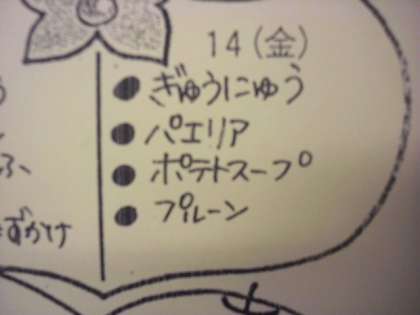 14(金)
ぎゅうにゅう
パエリア
ポテトスープ
プルーン
ずかけ